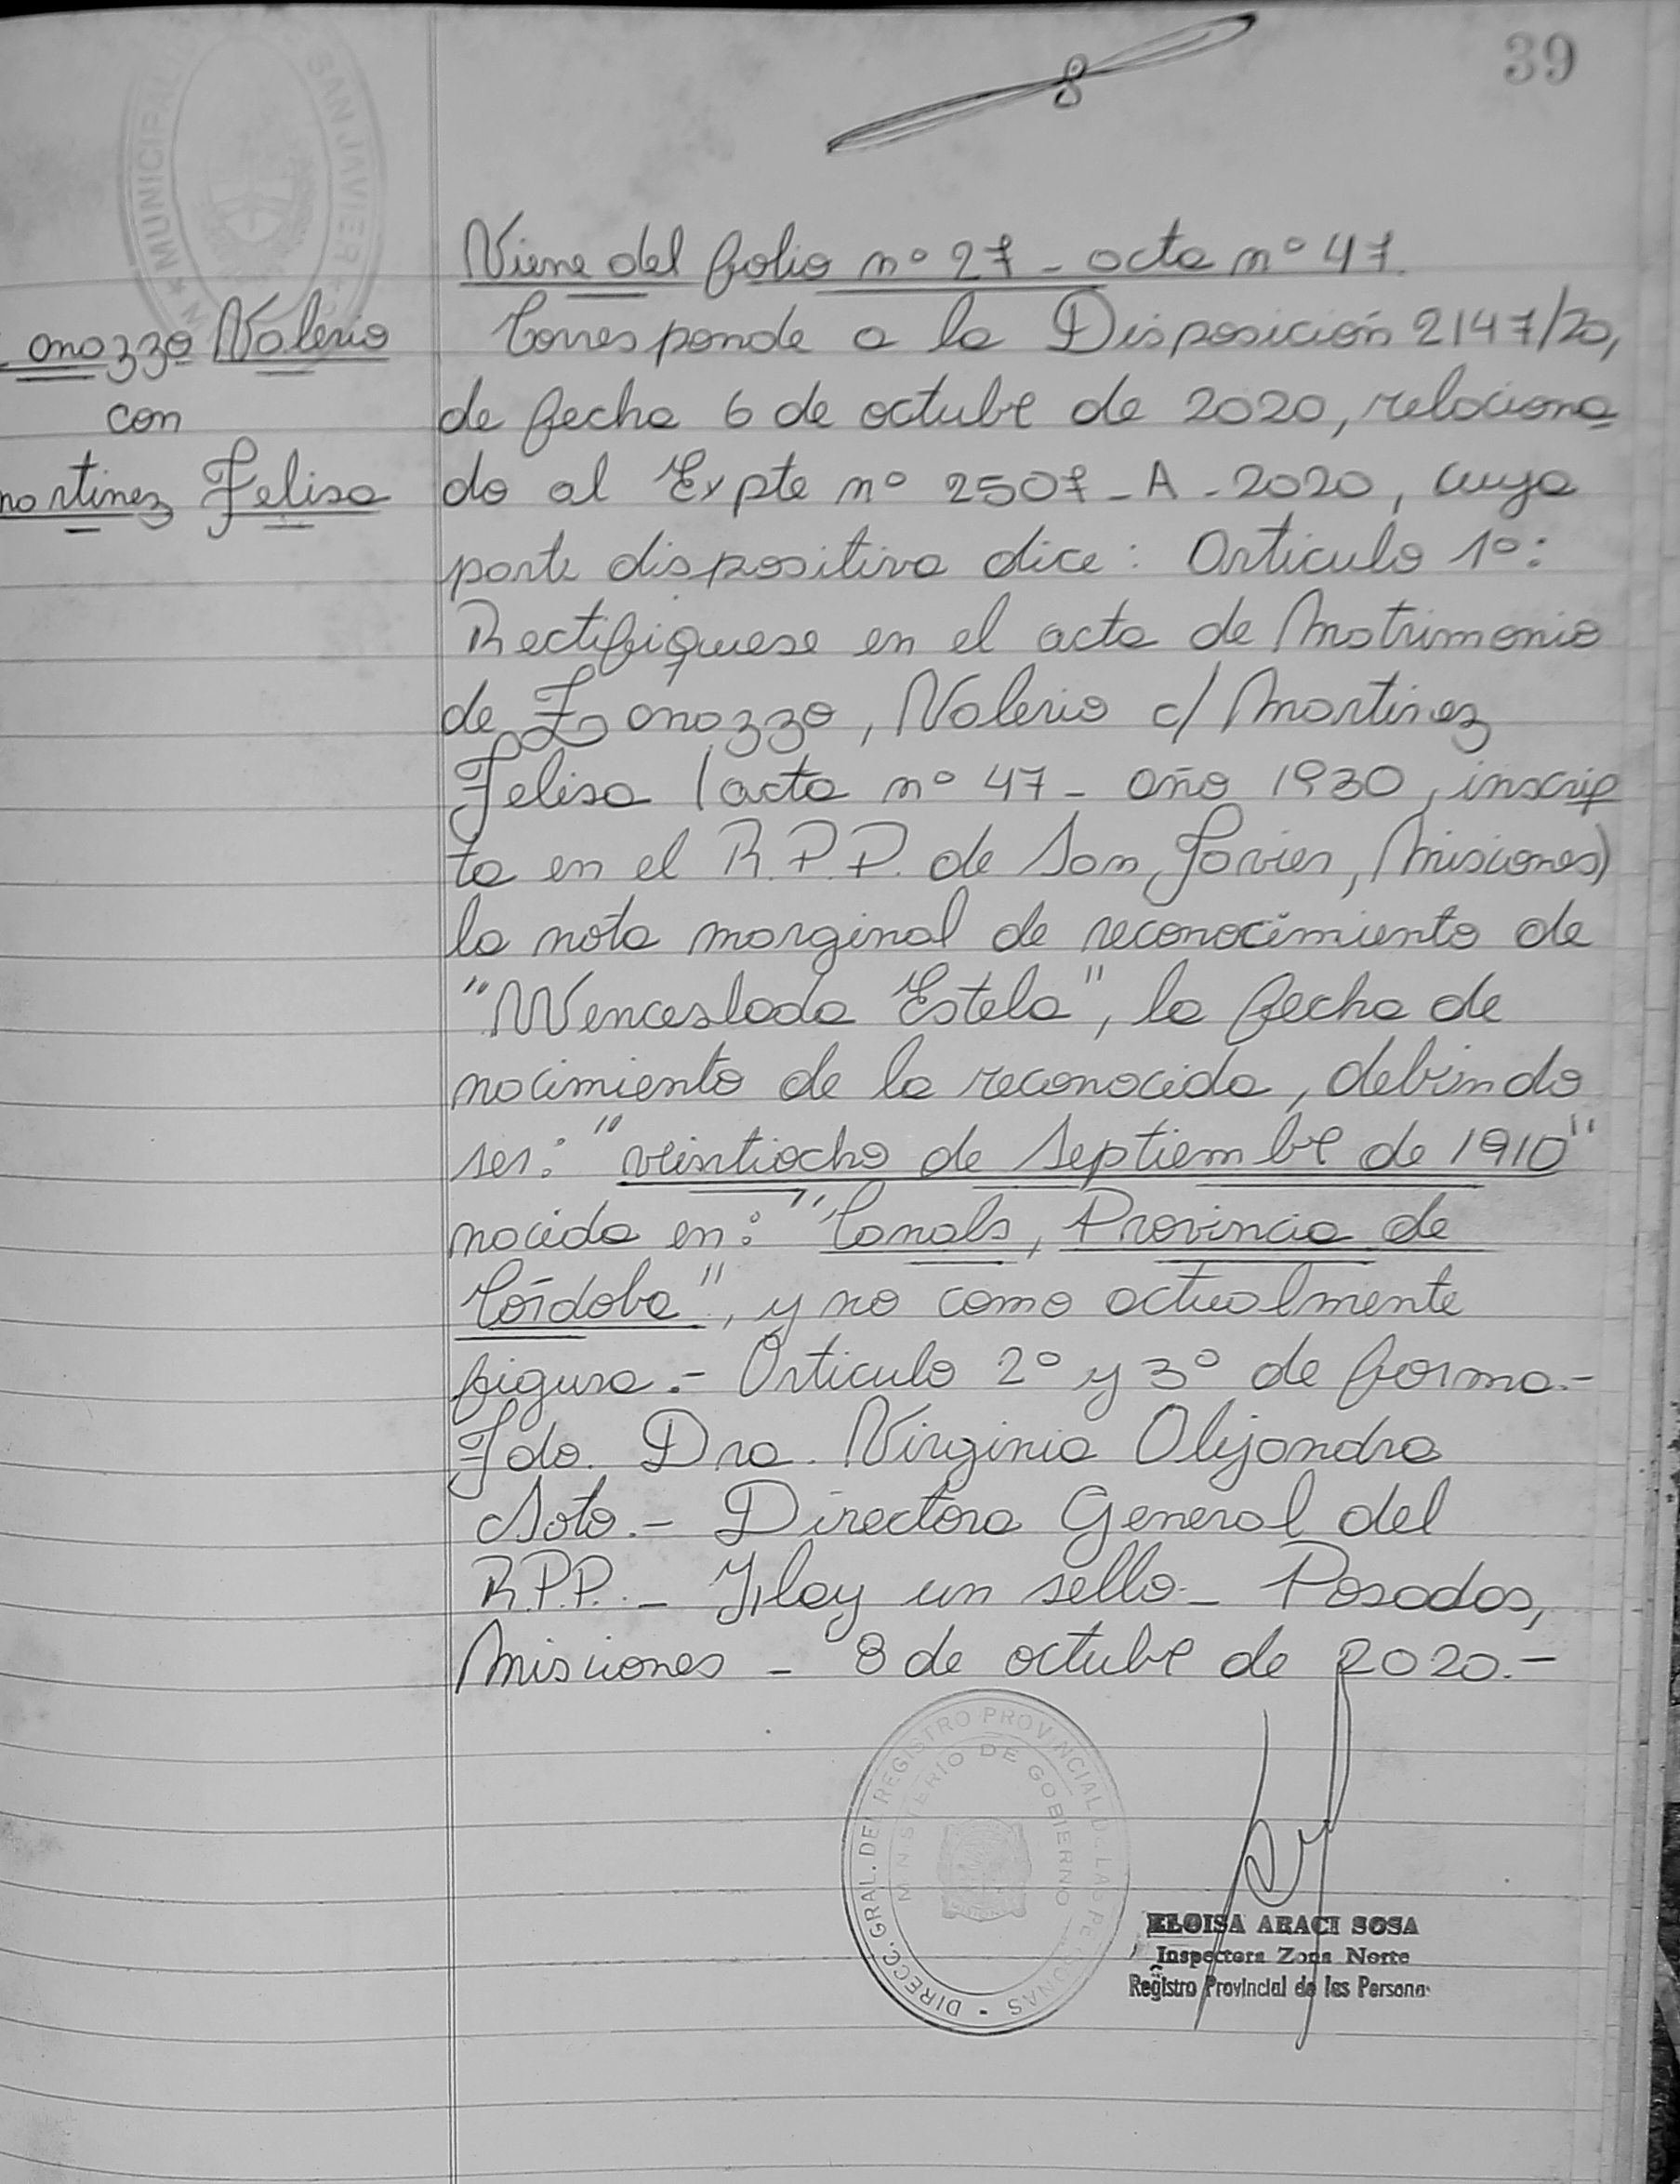 39
MUNICIPALI DE SAN JAVIER
Viene del folio nº 27 - acta nº 47.
onazzo Valerio
con
martinez Felisa
Corresponde a la Disposición 2147/20,
de fecha 6 de octubre de 2020, relaciona
do al Expte nº 2507-A-2020, cuya
parte dispositiva dice: Articulo 1º:
Rectifiquese en el acta de Matrimonio
de Zanazzo, Valerio c/ Martinez
Felisa (acta nº 47 - año 1930, inscrip
ta en el R.P.P. de San Javier, Misiones)
la nota marginal de reconocimiento de
"Wenceslada Estela", la fecha de
nacimiento de la reconocida, debiendo
ser: "veintiocho de Septiembre de 1910"
nacida en: "Canals, Provincia de
Córdoba", y no como actualmente
figura.- Articulo 2º y 3º de forma.-
Fdo. Dra. Virginia Alejandra
Soto.- Directora General del
R.P.P.- Hay un sello- Posadas,
Misiones - 8 de octubre de 2020.-
DIRECC. GRAL. DEL REGISTRO PROVINCIAL DE LAS PERSONAS
MINISTERIO DE GOBIERNO
ELOISA ARACI SOSA
Inspectora Zona Norte
Registro Provincial de las Persona